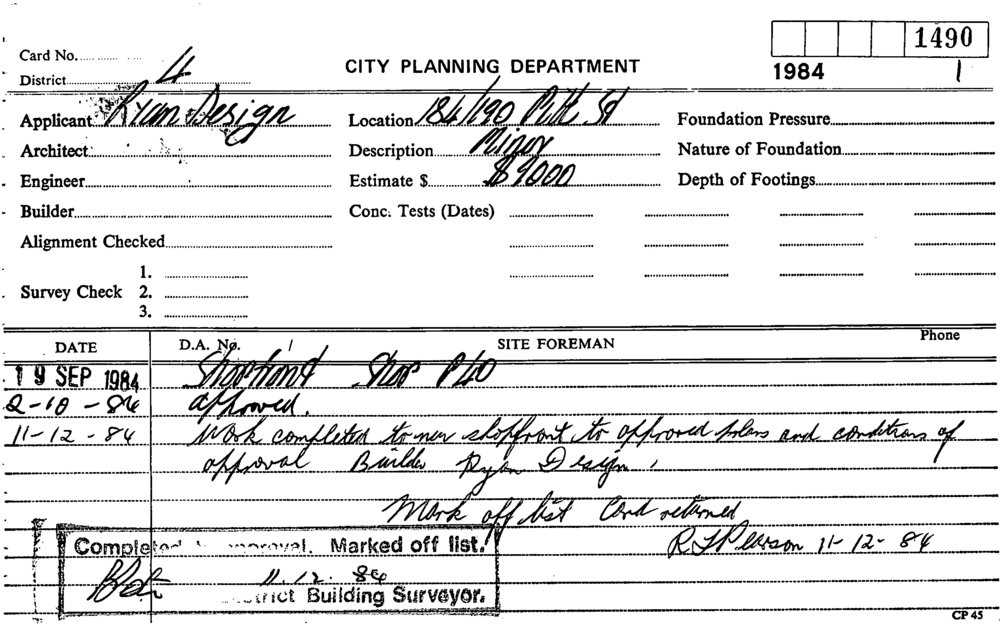 1490
Card No.
CITY PLANNING DEPARTMENT
1984 1
District 4
Applicant Ryan Design Location 184/190 Pitt St Foundation Pressure
Architect Description Minor Nature of Foundation
Engineer Estimate $ $9000 Depth of Footings
Builder Conc. Tests (Dates)
Alignment Checked
1.
Survey Check 2.
3.
DATE D.A. No. / SITE FOREMAN Phone
19 SEP 1984 Shopfront Shop P40
2-10-84 approved.
11-12-84 Work completed to new shopfront to approved plans and conditions of
approval Builder Ryan Design.
Mark off list Card returned
Completed approval. Marked off list. R J Pearson 11-12-84
11.12.84
District Building Surveyor.
CP 45